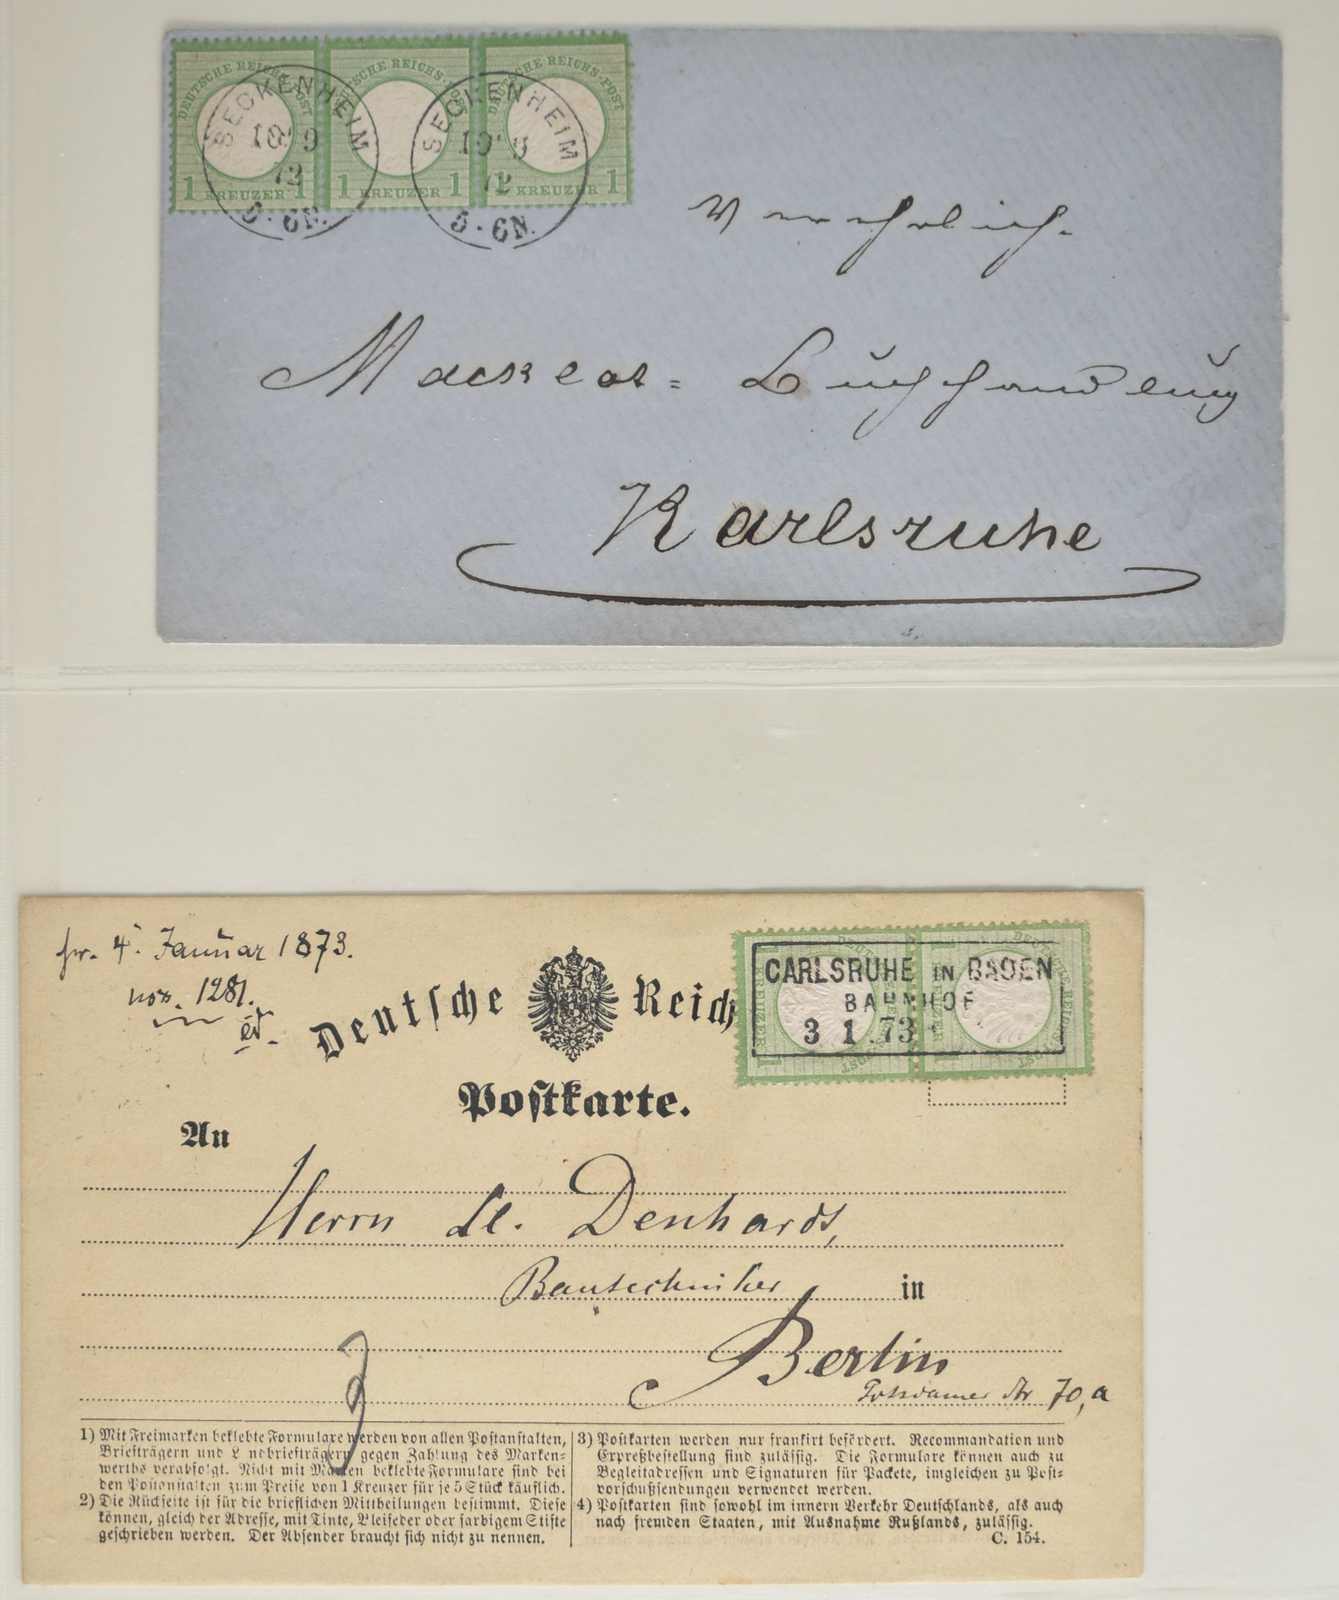 DEUTSCHE REICHS-POST DEUTSCHE REICHS-POST DEUTSCHE REICHS-POST
1 KREUZER 1 1 KREUZER 1 1 KREUZER 1
SECKENHEIM SECKENHEIM
10 9 10 9
72 72
5-6N. 5-6N.
Verehrlich.
Macklot= Buchhandlung
Karlsruhe
4. Januar 1873.
1281.
Deutsche Reichs
Postkarte.
CARLSRUHE IN BADEN
BAHNHOF
3 1 73
An
Herrn Denhardt,
Bautechniker in
Berlin
Potsdamer Str 70,a
1) Mit Freimarken beklebte Formulare werden von allen Postanstalten, Briefträgern und Landbriefträgern gegen Zahlung des Marken-
werths verabfolgt. Nicht mit Marken beklebte Formulare sind bei
den Postanstalten zum Preise von 1 Kreuzer für je 5 Stück käuflich.
2) Die Rückseite ist für die brieflichen Mittheilungen bestimmt. Diese
können, gleich der Adresse, mit Tinte, Bleifeder oder farbigem Stifte
geschrieben werden. Der Absender braucht sich nicht zu nennen.
3) Postkarten werden nur frankirt befördert. Recommandation und
Expreßbestellung sind zulässig. Die Formulare können auch zu
Begleitadressen und Signaturen für Packete, imgleichen zu Post-
vorschußsendungen verwendet werden.
4) Postkarten sind sowohl im innern Verkehr Deutschlands, als auch
nach fremden Staaten, mit Ausnahme Rußlands, zulässig.
C. 154.